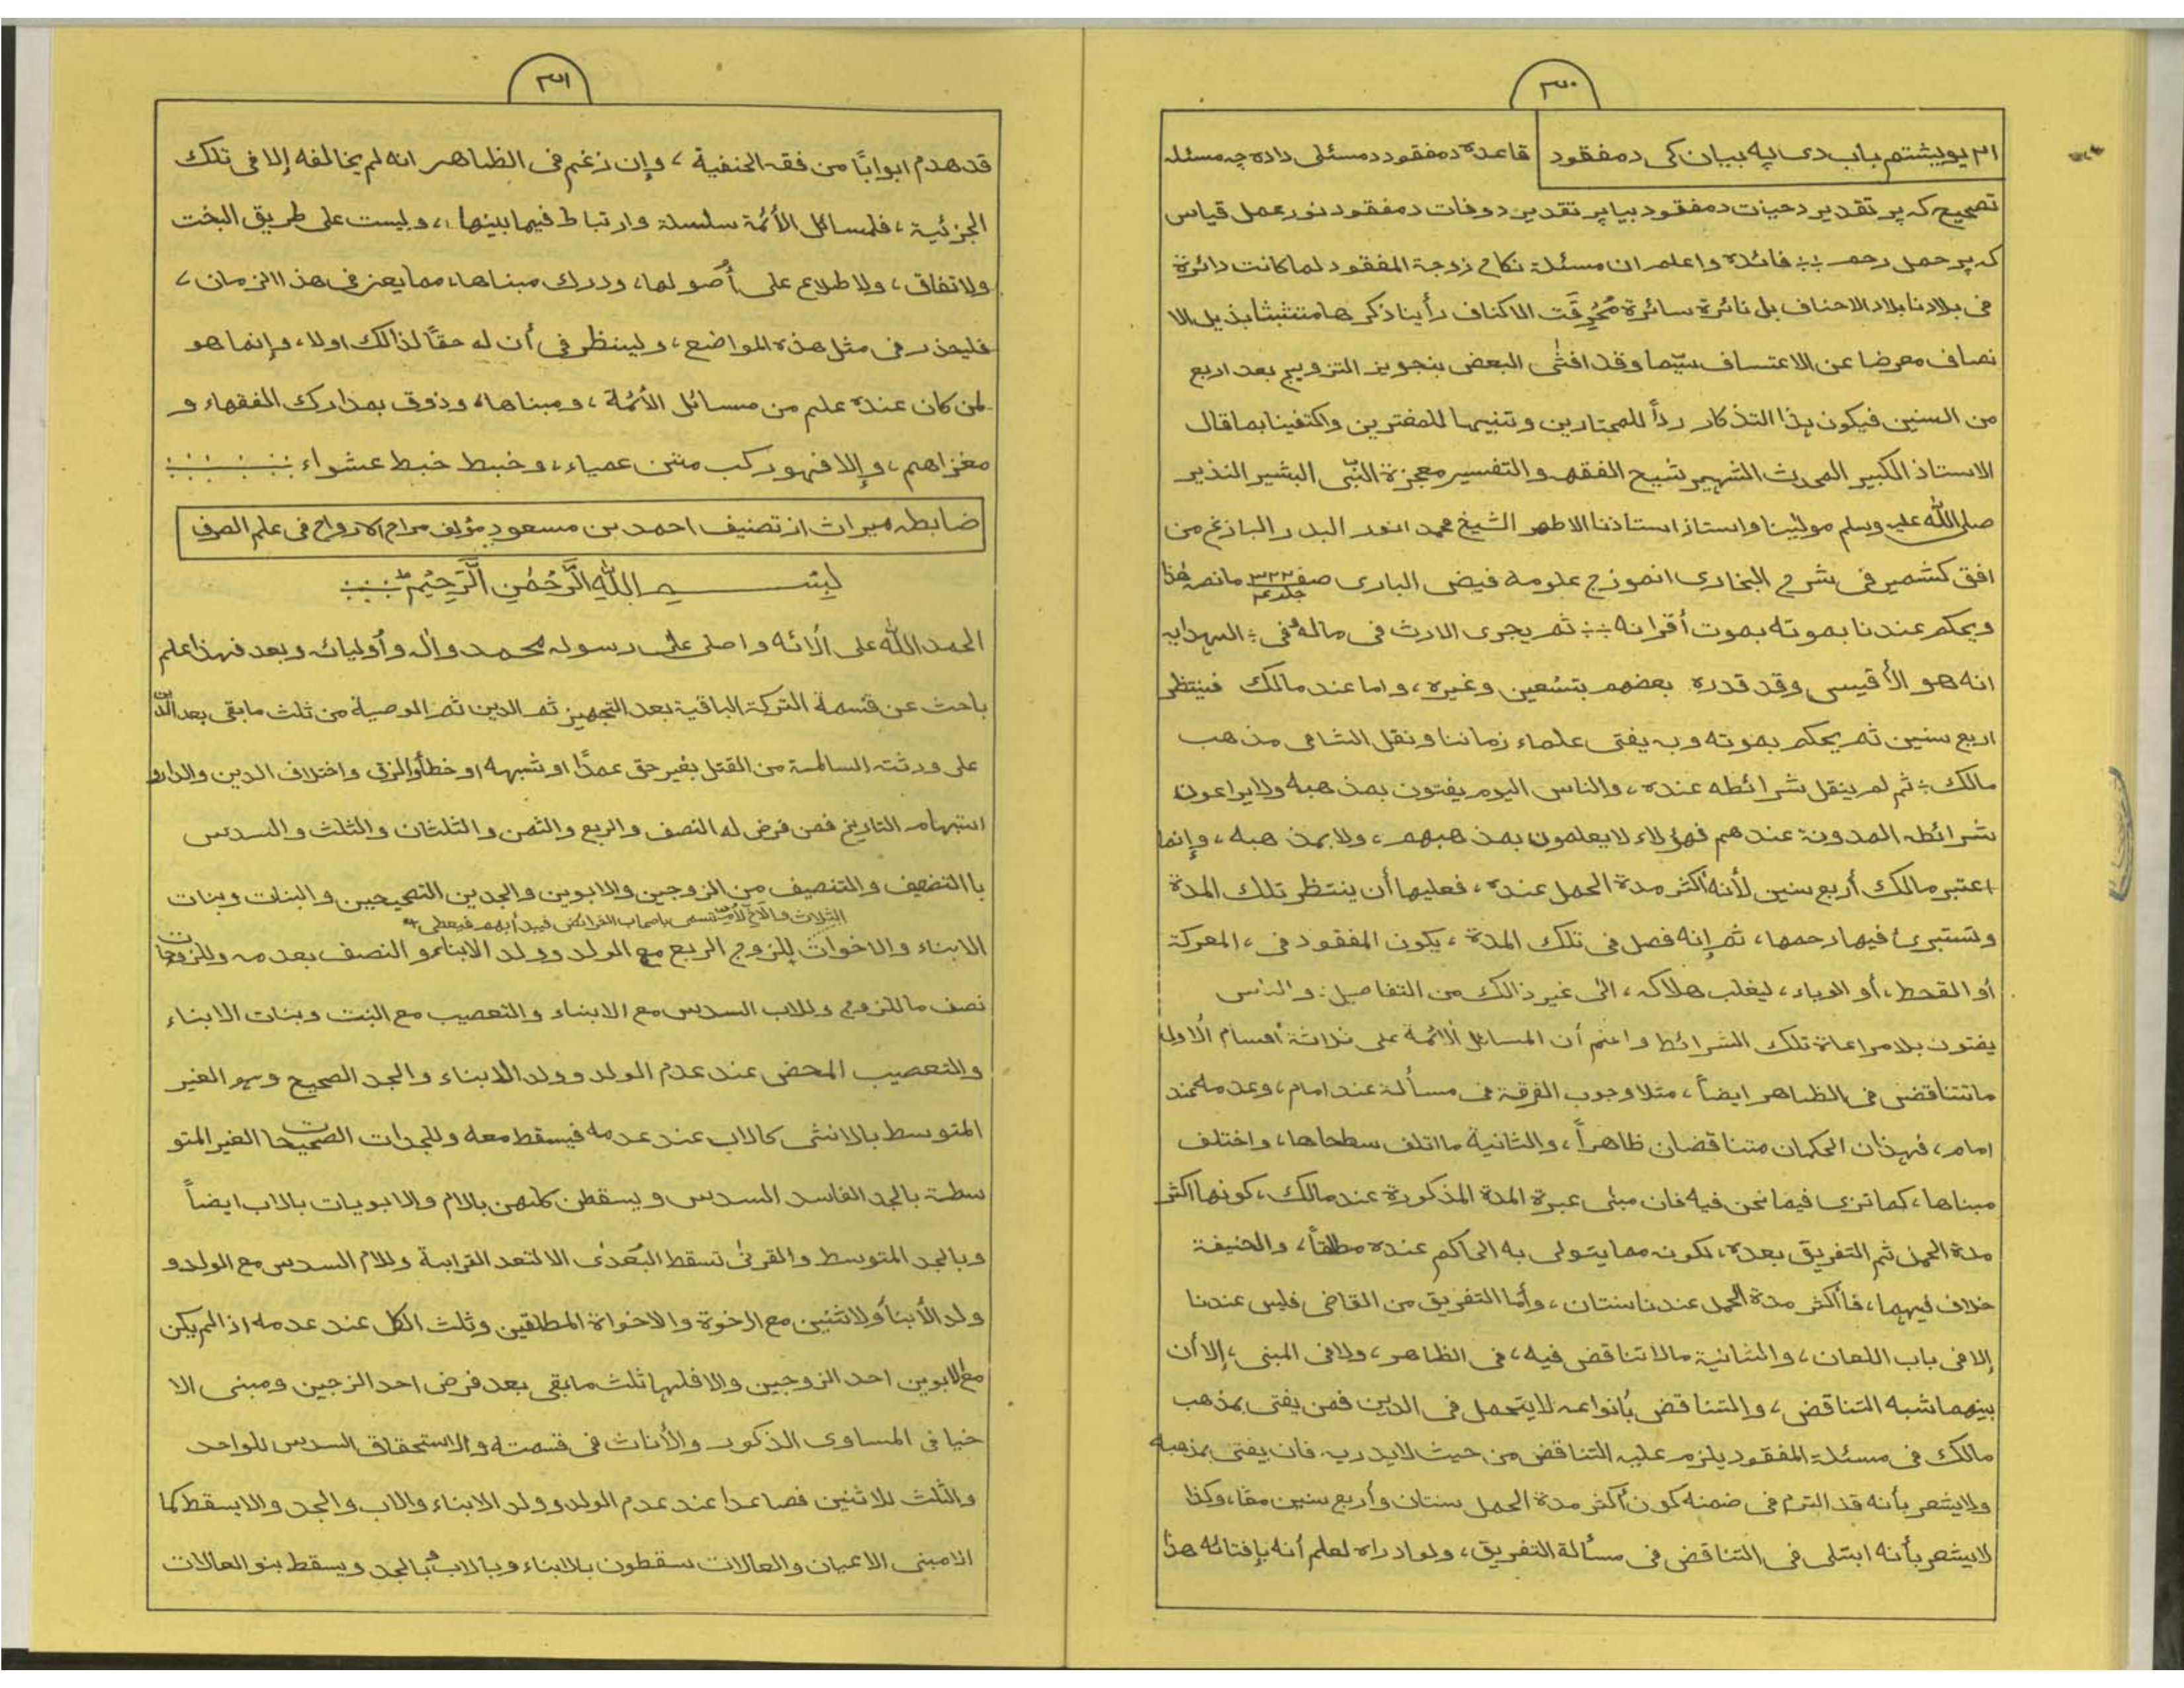 ٣٠
٣١ یوویشتم باب دی په بیان کی د مفقود قاعده د مفقود د مسئلی داده چه مسئله
تصحیح که پر تقدیر د حیات د مفقود بیا پر تقدیر د وفات د مفقود نور عمل قیاس
که پر حمل رحم فائدة واعلم ان مسئلة نکاح زوجة المفقود لما کانت دائرة
فی بلادنا بلاد الاحناف بل نائرة سائرة مُحْرِقَت الاکناف رأینا ذکرها متثبثا بذیل الا
نصاف معرضا عن الاعتساف سیّما وقد افتٰی البعض بتجویز التزویج بعد اربع
من السنین فیکون هذا التذکار رداً للمجتارین وتنبیها للمفترین واکتفینا بما قال
الاستاذ الکبیر المحدث الشهیر شیخ الفقه والتفسیر معجزة النبی البشیر النذیر
صلی الله علیه وسلم مولینا واستاذ استاذنا الاطهر الشیخ محمد انور البدر البازغ من
افق کشمیر فی شرح البخاری انموذج علومه فیض الباری صفحه ٣٢٢ جلد ما نصه هٰذا
ویحکم عندنا بموته بموت أقرانه ثم یجری الارث فی ماله وفی الهدایه
انه هو الأقیسی وقد قدره بعضهم بتسعین وغیره، واما عند مالک فینتظر
اربع سنین ثم یحکم بموته وبه یفتی علماء زماننا ونقل الشامی مذهب
مالک ثم لم ینقل شرائطه عنده، والناس الیوم یفتون بمذهبه ولا یراعون
شرائطه المدونة عندهم فهؤلاء لا یعلمون بمذهبهم، ولا بمذهبه، وإنما
اعتبر مالک أربع سنین لأنه أکثر مدة الحمل عنده، فعلیها أن ینتظر تلک المدة
وتستبرئ فیها رحمها، ثم إنه فصل فی تلک المدة، یکون المفقود فی، المعرکة
أو القحط، أو الوباء، لیغلب هلاکه، الی غیر ذالک من التفاصیل: والناس
یفتون بلا مراعاة تلک الشرائط واعلم أن المسائل الأئمة علی ثلاثة أقسام الاولیٰ
ما تتناقض فی الظاهر ایضاً، مثلا وجوب الفرقة فی مسألة عند امام، وعدمه عند
امام، فهذان الحکمان متناقضان ظاهراً، والثانیة ما ائتلف سطحاها، واختلف
مبناها، کما تری فیما نحن فیه فان مبنی عبرة المدة المذکورة عند مالک، کونها اکثر
مدة الحمل ثم التفریق بعده، لکونه مما یتولی به الحاکم عنده مطلقاً، والحنیفة
خلاف فیهما، فأکثر مدة الحمل عندنا سنتان، وأما التفریق من القاضی فلیس عندنا
إلا فی باب اللعان، والثانیة مالا تناقض فیه، فی الظاهر، ولا فی المبنی، إلا أن
بینهما شبه التناقض، والتناقض بأنواعه لا یتحمل فی الدین فمن یفتی بمذهب
مالک فی مسئلة المفقود یلزم علیه التناقض من حیث لا یدریه فان یفتی بمذهبه
ولا یشعر بأنه قد التزم فی ضمنه کون أکثر مدة الحمل سنتان وأربع سنین معًا، وکذا
لا یشعر بأنه ابتلی فی التناقض فی مسألة التفریق، ولو ادراه لعلم أنه بإفتائه هذا
٣١
قد هدم ابوابًا من فقه الحنفیة، وإن زعم فی الظاهر انه لم یخالفه إلا فی تلک
الجزئیة، فلمسائل الأئمة سلسلة وارتباط فیما بینها، ولیست علی طریق البخت
ولا تفاق، ولا طلاع علی أصولها، ودرک مبناها، مما یعز فی هذا الزمان،
فلیحذر فی مثل هذه المواضع، ولینظر فی أن له حقًا لذالک اولا، وإنما هو
لمن کان عنده علم من مسائل الأئمة، ومبناها، وذوق بمدارک الفقهاء و
مغزاهم، وإلا فهو رکب متن عمیاء، وخبط خبط عشواء
ضابطه میراث از تصنیف احمد بن مسعود مؤلف مراح الارواح فی علم الصرف
بِسْمِ اللهِ الرَّحْمٰنِ الرَّحِیْمِ
الحمد الله علی آلائه واصلی علی رسوله محمد وآل وأولیائه وبعد فهذا علم
باحث عن قسمة الترکة الباقیة بعد التجهیز ثم الدین ثم الوصیة من ثلث ما بقی بعد الدین
علی ورثته السالمة من القتل بغیر حق عمدًا او شبهه او خطأ والرق واختلاف الدین والدار و
استبهام التاریخ فمن فرض له النصف والربع والثمن والثلثان والثلث والسدس
با التضعیف والتنصیف من الزوجین والابوین والجدین الصحیحین والبنات وبنات
الثلاث والاخ لأم تسمی باصحاب الفرائض فیبدأ بهم فیعطی
الابناء والاخوات للزوج الربع مع الولد وولد الابناء و النصف بعدمه وللزوجات
نصف ما للزوج وللاب السدس مع الابناء والتعصیب مع البنت وبنات الابناء
والتعصیب المحض عند عدم الولد وولد الابناء والجد الصحیح وهو الغیر
المتوسط بالانثی کالاب عند عدمه فیسقط معه وللجدات الصحیحات الغیر المتو
سطة بالجد الفاسد السدس ویسقطن کلهن بالام والابویات بالاب ایضاً
وبالجد المتوسط والقربٰی تسقط البُعدٰی الا لتعد القرابة وللام السدس مع الولد و
ولد الأبناء ولاثنین مع الاخوة والاخواة المطلقین وثلث الکل عند عدمه اذا لم یکن
مع الابوین احد الزوجین والا فلها ثلث ما بقی بعد فرض احد الزجین ومبنی الا
خیافی المساوی الذکور والأناث فی قسمته والاستحقاق السدس للواحد
والثلث للاثنین فصاعدا عند عدم الولد وولد الابناء والاب والجد والا یسقط کما
الامبنی الاعیان والعالات سقطون بالابناء وبالاب وبالجد ویسقط بنو العالات